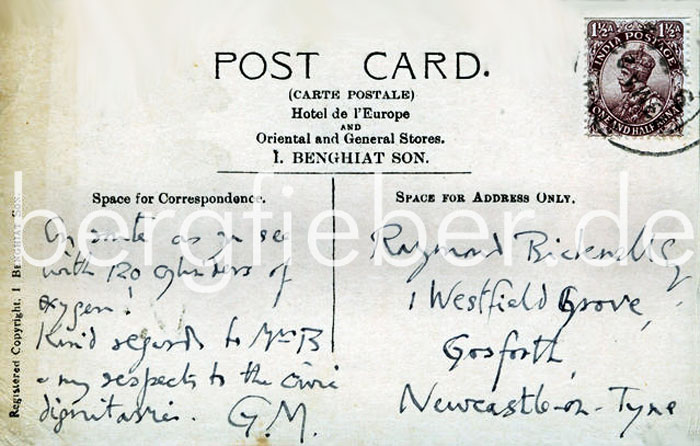 POST CARD.
(CARTE POSTALE)
Hotel de l'Europe
AND
Oriental and General Stores.
I. BENGHIAT SON.
1½A 1½A
INDIA POSTAGE
ONE AND HALF ANNA
bergfieber.de
Registered Copyright, I BENGHIAT SON.
Space for Correspondence.
En route as you see
with 120 cylinders of
oxygen!
Kind regards to Mrs B
& my respects to the civic
dignitaries. G.M.
SPACE FOR ADDRESS ONLY.
Raymond Bicknell Esq
1 Westfield Grove,
Gosforth,
Newcastle-on-Tyne